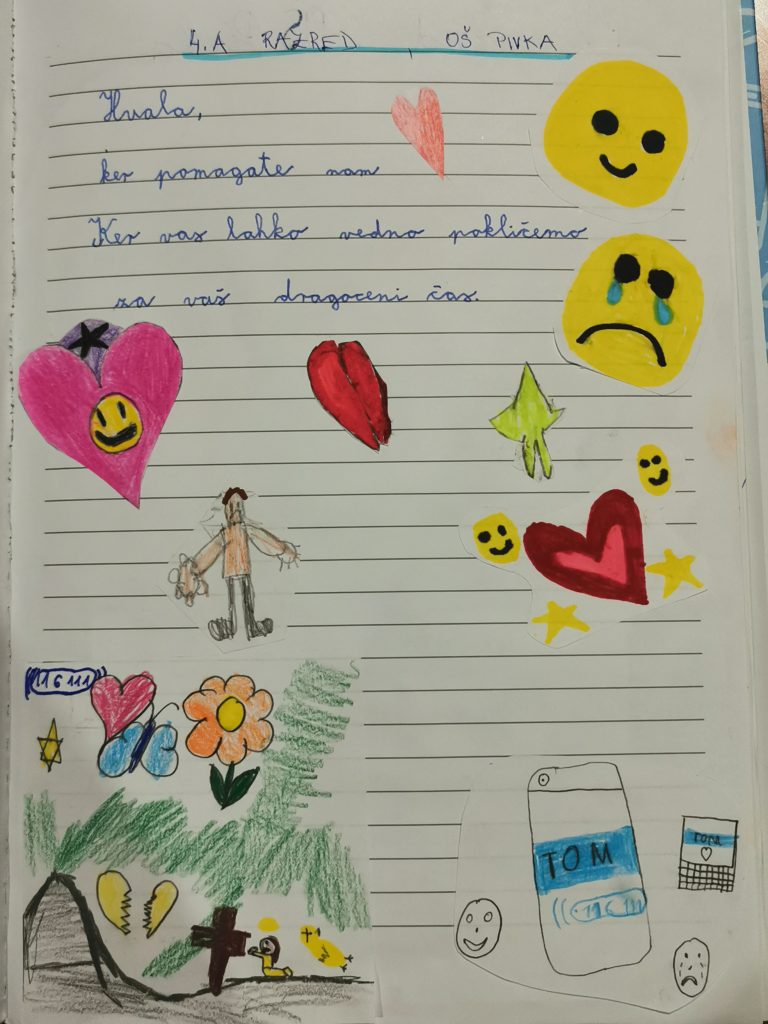 4.A RAZRED OŠ PIVKA
Hvala,
ker pomagate nam
Ker vas lahko vedno pokličemo
za vaš dragoceni čas.
116 111
TOM
116 111